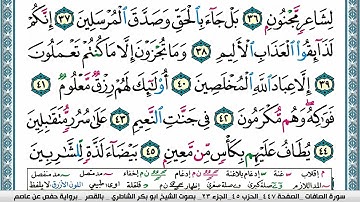 لِشَاعِرٍ مَّجْنُونِۭ ٣٦ بَلْ جَآءَ بِٱلْحَقِّ وَصَدَّقَ ٱلْمُرْسَلِينَ ٣٧ إِنَّكُمْ
لَذَآئِقُوا۟ ٱلْعَذَابِ ٱلْأَلِيمِ ٣٨ وَمَا تُجْزَوْنَ إِلَّا مَا كُنتُمْ تَعْمَلُونَ
٣٩ إِلَّا عِبَادَ ٱللَّهِ ٱلْمُخْلَصِينَ ٤٠ أُو۟لَٰٓئِكَ لَهُمْ رِزْقٌ مَّعْلُومٌ ٤١
فَوَٰكِهُ وَهُم مُّكْرَمُونَ ٤٢ فِى جَنَّٰتِ ٱلنَّعِيمِ ٤٣ عَلَىٰ سُرُرٍ مُّتَقَٰبِلِينَ
٤٤ يُطَافُ عَلَيْهِم بِكَأْسٍ مِّن مَّعِينٍۭ ٤٥ بَيْضَآءَ لَذَّةٍ لِّلشَّٰرِبِينَ
سورة الصافات الصفحة ٤٤٧ الحزب ٤٥ الجزء ٢٣ بصوت الشيخ ابو بكر الشاطري بالقصر برواية حفص عن عاصم